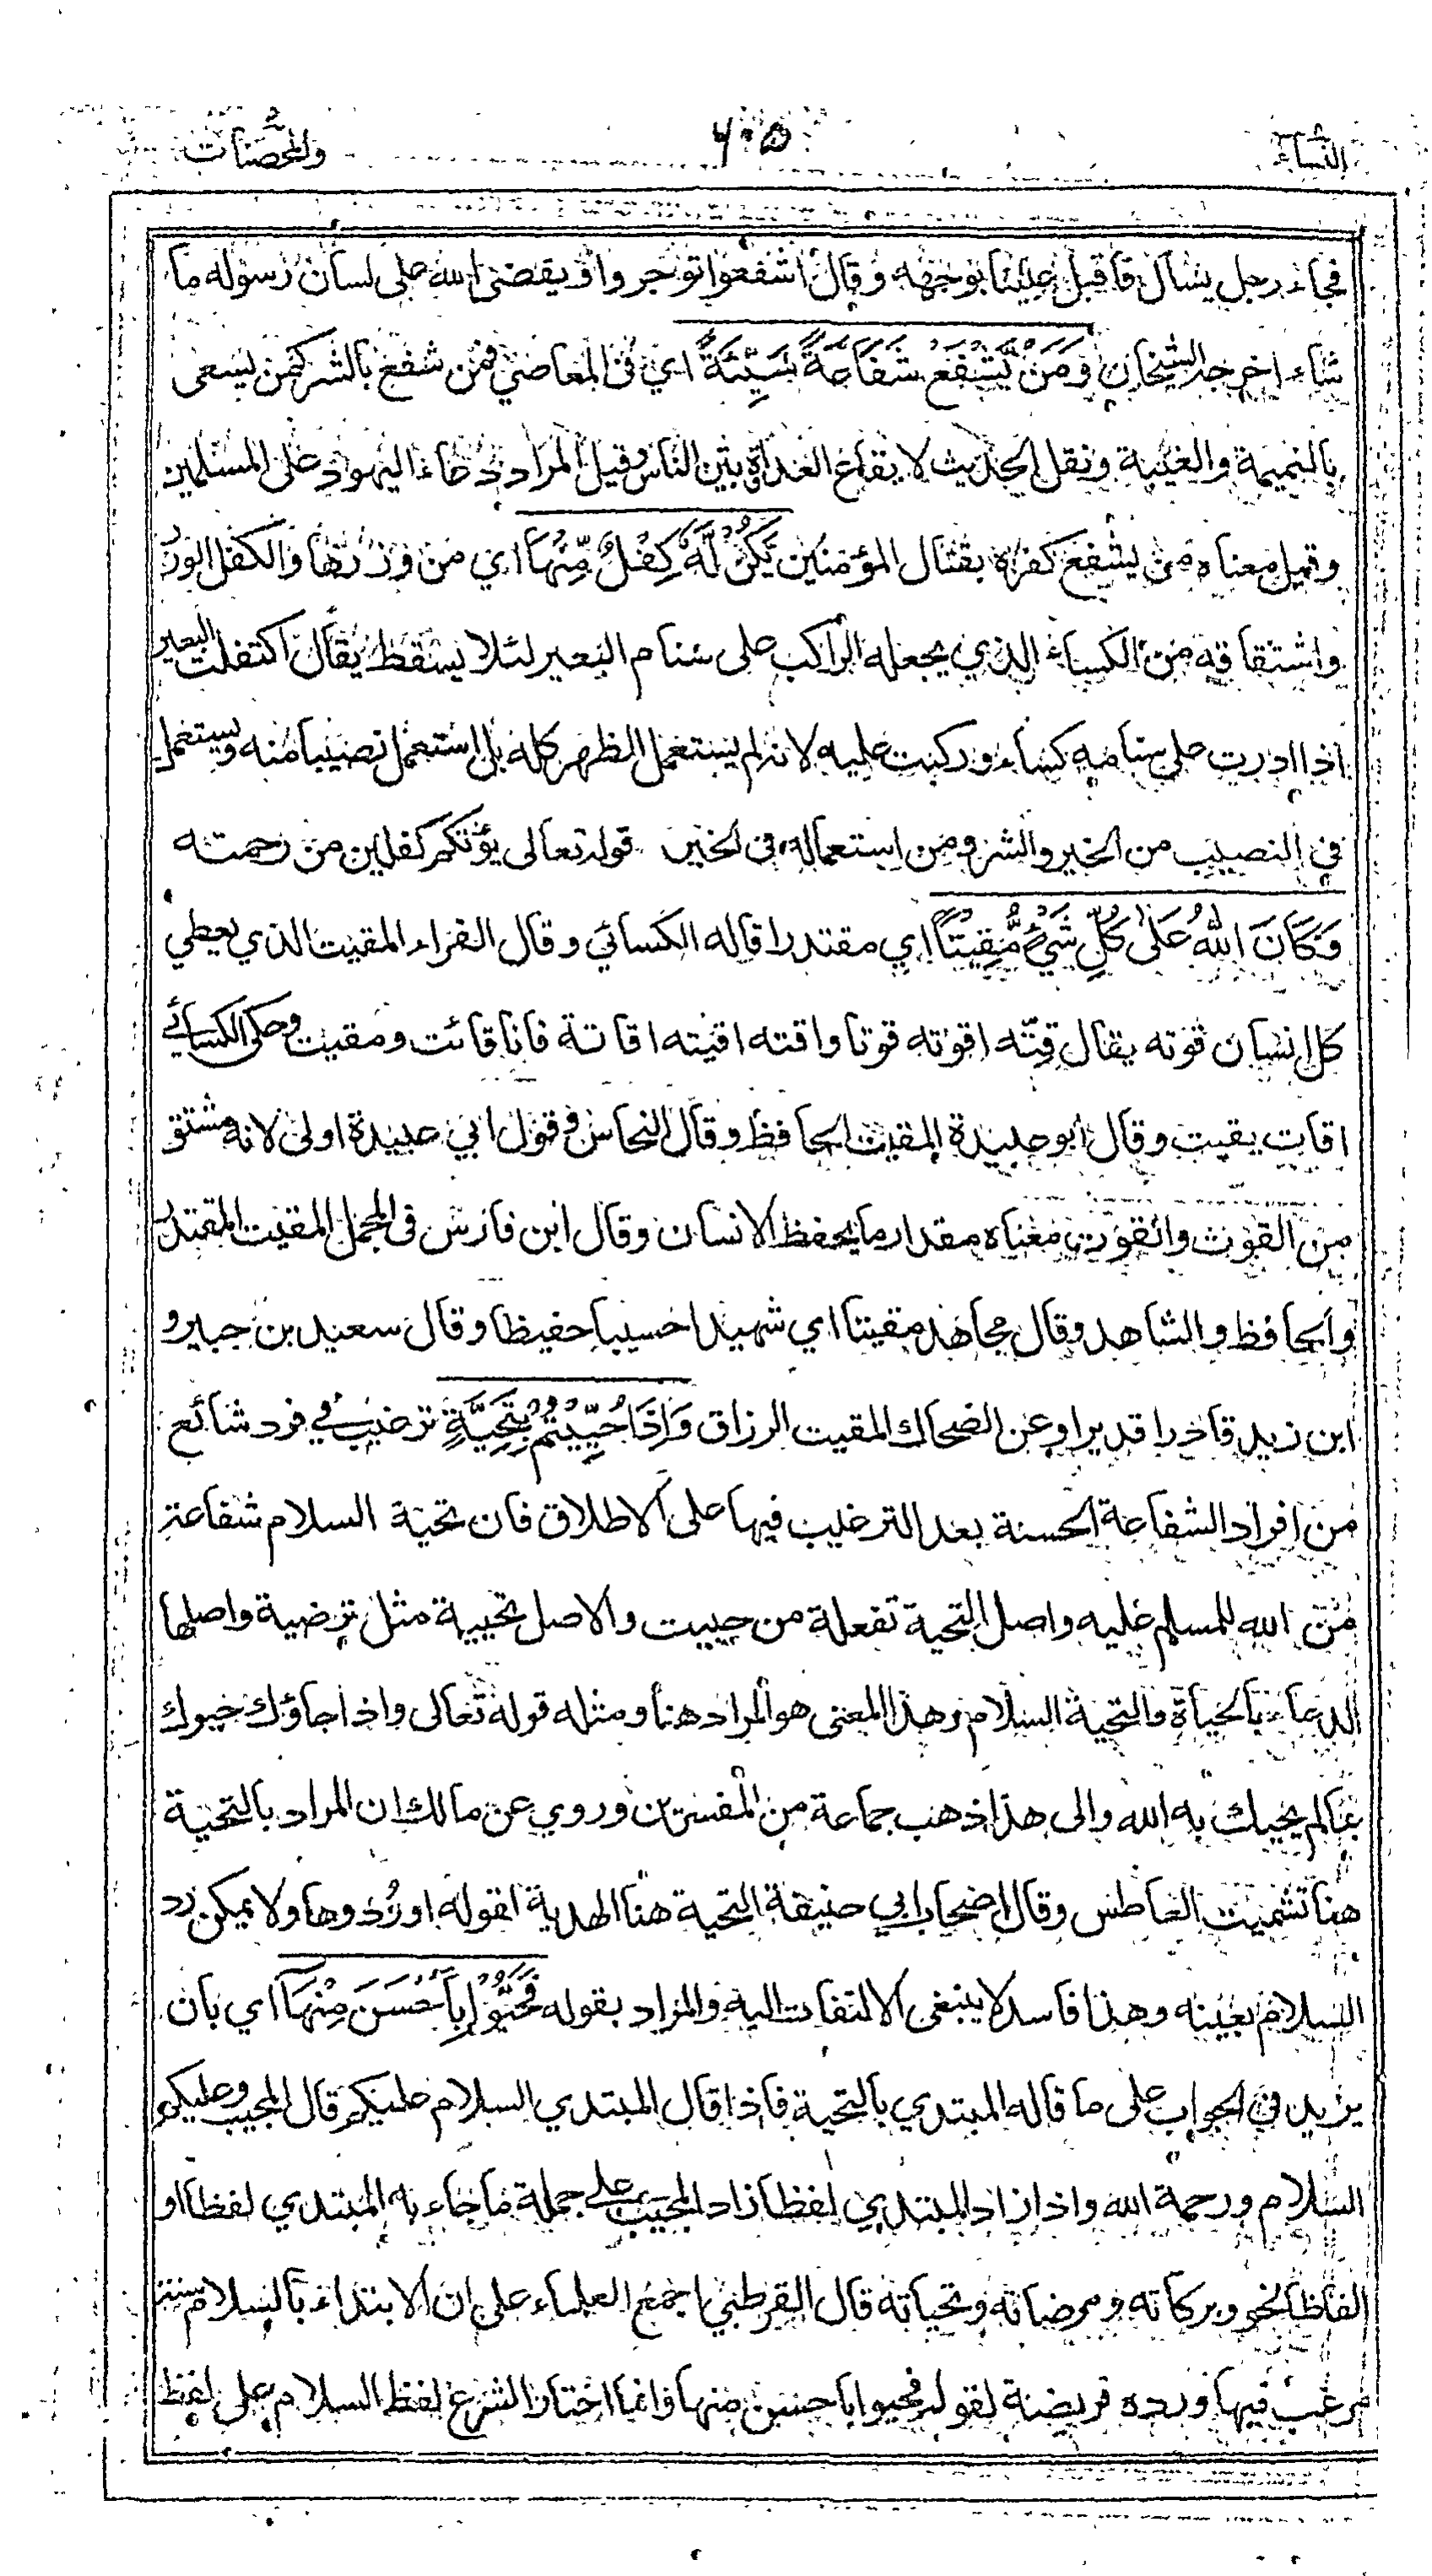 النساء
٦٠٥
والمحصنات
فجاء رجل يسأل فاقبل علينا بوجهه وقال اشفعوا توجروا ويقضى الله على لسان رسوله ما
شاء اخرجه الشيخان وَمَنْ يَّشْفَعْ شَفَاعَةً سَيِّئَةً اي في المعاصي فمن شفع بالشر كمن يسعى
بالنميمة والغيبة ونقل الحديث لايقاع العداوة بين الناس وقيل المراد دعاء اليهود على المسلمين
وقيل معناه من يشفع كفره بقتال المؤمنين يَكُنْ لَّهٗ كِفْلٌ مِّنْهَا اي من وزرها والكفل الوزر
واشتقاقه من الكساء الذي يجعله الراكب على سنام البعير لئلا يسقط يقال اكتفلت البعير
اذا ادرت على سنامه كساء وركبت عليه لانه لم يستعمل الظهر كله بل استعمل نصيبا منه ويستعمل
في النصيب من الخير والشر ومن استعماله في الخير قوله تعالى يؤتكم كفلين من رحمته
وَكَانَ اللّٰهُ عَلٰى كُلِّ شَيْءٍ مُّقِيْتًا اي مقتدرا قاله الكسائي وقال الفراء المقيت الذي يعطي
كل انسان قوته يقال قتّه اقوته قوتا واقته اقيته اقاتة فانا قائت ومقيت وحكى الكسائي
اقات يقيت وقال ابو عبيدة المقيت الحافظ وقال النحاس وقول ابي عبيدة اولى لانه مشتق
من القوت والقوت معناه مقدار ما يحفظ الانسان وقال ابن فارس في المجمل المقيت المقتدر
والحافظ والشاهد وقال مجاهد مقيتا اي شهيدا حسيبا حفيظا وقال سعيد بن جبير و
ابن زيد قادرا قديرا وعن الضحاك المقيت الرزاق وَاِذَا حُيِّيْتُمْ بِتَحِيَّةٍ ترغيب في فرد شائع
من افراد الشفاعة الحسنة بعد الترغيب فيها على الاطلاق فان تحية السلام شفاعة
من الله للمسلم عليه واصل التحية تفعلة من حييت والاصل تحيية مثل ترضية واصلها
الدعاء بالحياة والتحية السلام وهذا المعنى هو المراد هنا ومثله قوله تعالى واذا جاؤك حيوك
بما لم يحيك به الله والى هذا ذهب جماعة من المفسرين وروي عن مالك ان المراد بالتحية
هنا تشميت العاطس وقال اصحاب ابي حنيفة التحية هنا الهدية لقوله او رُدوها ولا يمكن رد
السلام بعينه وهذا فاسد لا ينبغي الالتفات اليه والمراد بقوله فَحَيُّوْا بِاَحْسَنَ مِنْهَا اي بان
يزيد في الجواب على ما قاله المبتدي بالتحية فاذا قال المبتدي السلام عليكم قال المجيب وعليكم
السلام ورحمة الله واذا زاد المبتدي لفظا زاد المجيب على جملة ما جاء به المبتدي لفظا او
الفاظا نحو وبركاته ومرضاته وتحياته قال القرطبي اجمع العلماء على ان الابتداء بالسلام سنة
مرغب فيها ورده فريضة لقوله فحيوا باحسن منها وانما اختار الشرع لفظ السلام على لفظ